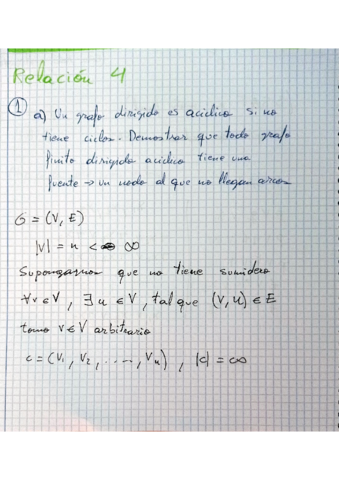 Relación 4
① a) Un grafo dirigido es acíclico si no
tiene ciclos. Demostrar que todo grafo
finito dirigido acíclico tiene una
fuente → un nodo al que no llegan arcos
G = (V, E)
|V| = n < ∞
Supongamos que no tiene sumidero
∀v ∈ V, ∃ u ∈ V, tal que (v, u) ∈ E
tomo v ∈ V arbitrario
c = (v₁, v₂, ..., vₙ), |c| = ∞